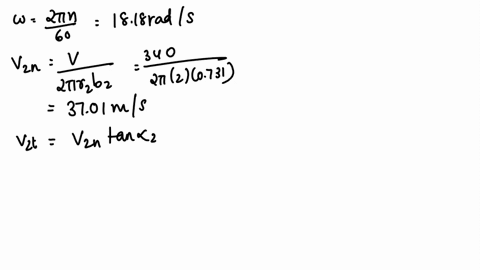 ω = 2πn/60 = 18.18 rad/s
V₂ₙ = V/2πr₂b₂ = 340/2π(2)(0.731)
= 37.01 m/s
V₂ₜ = V₂ₙ tan α₂